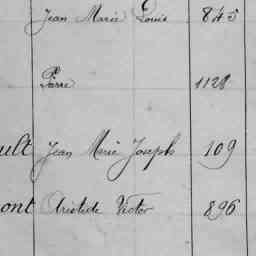 Jean Marie Louis 845
Pierre 1128
ult Jean Marie Joseph 109
ont Aristide Victor 896